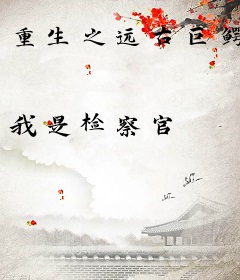 重生之远古巨鳄
我是检察官